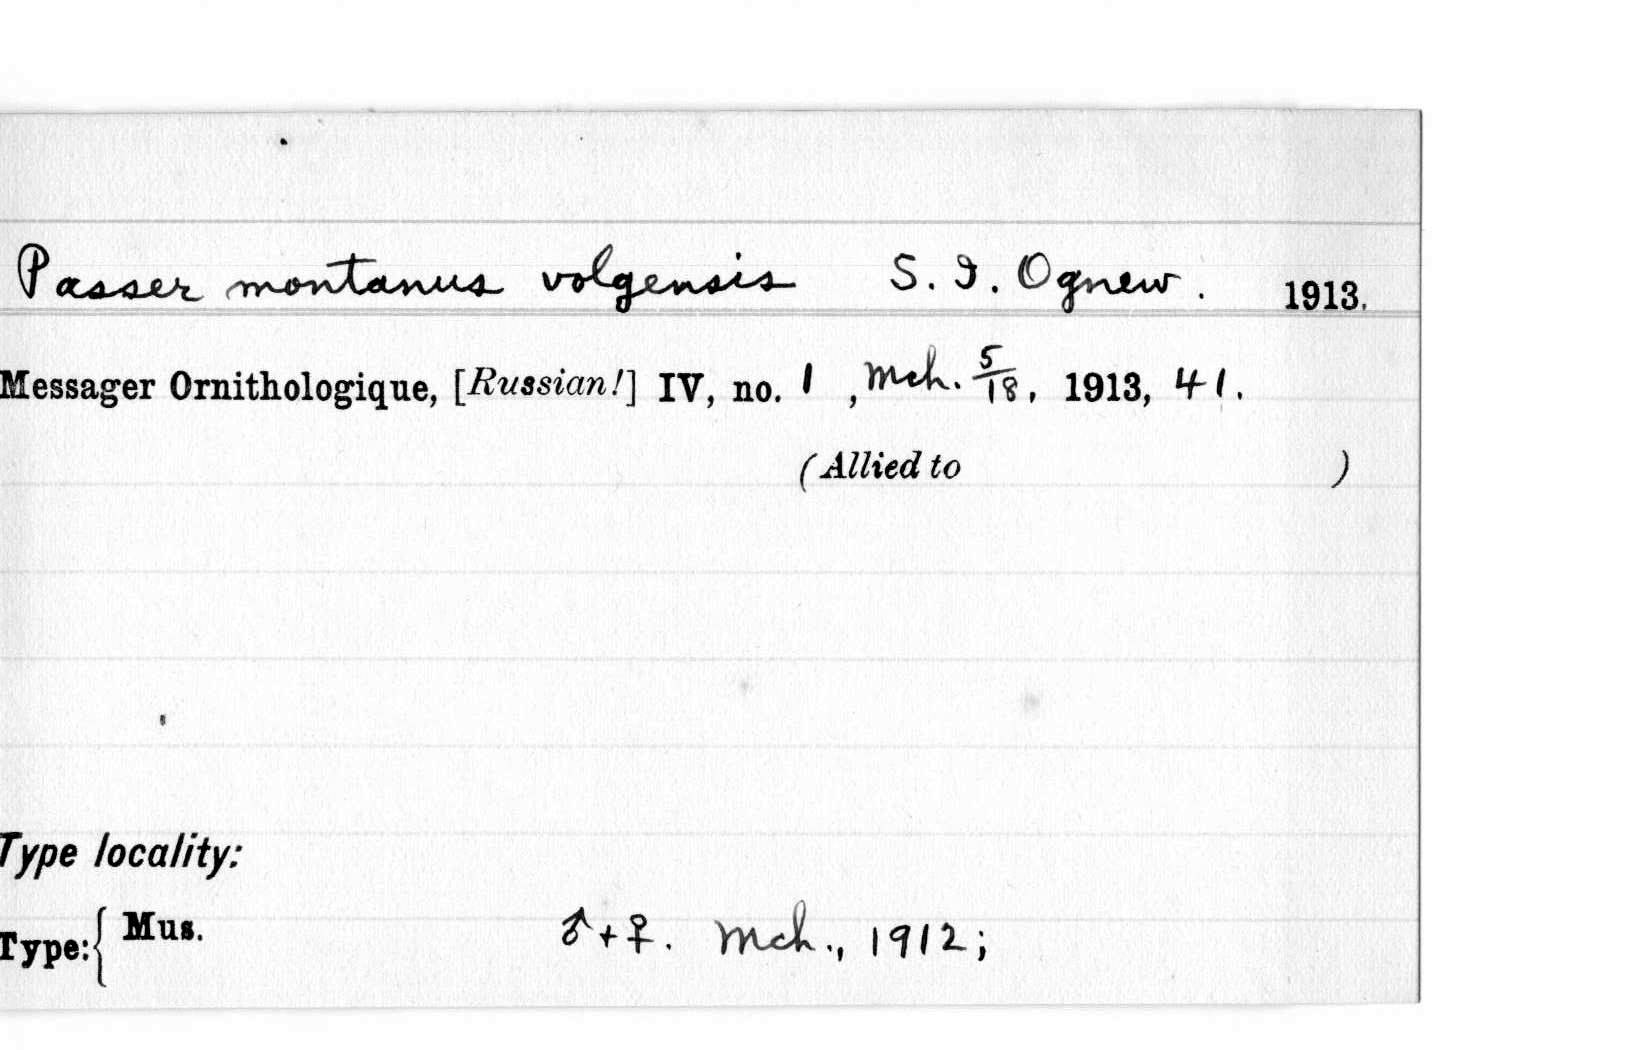 Passer montanus volgensis S. I. Ognew. 1913.
Messager Ornithologique, [Russian!] IV, no. 1, Mch. 5/18, 1913, 41.
(Allied to )
Type locality:
Type: { Mus. ♂+♀. Mch., 1912;